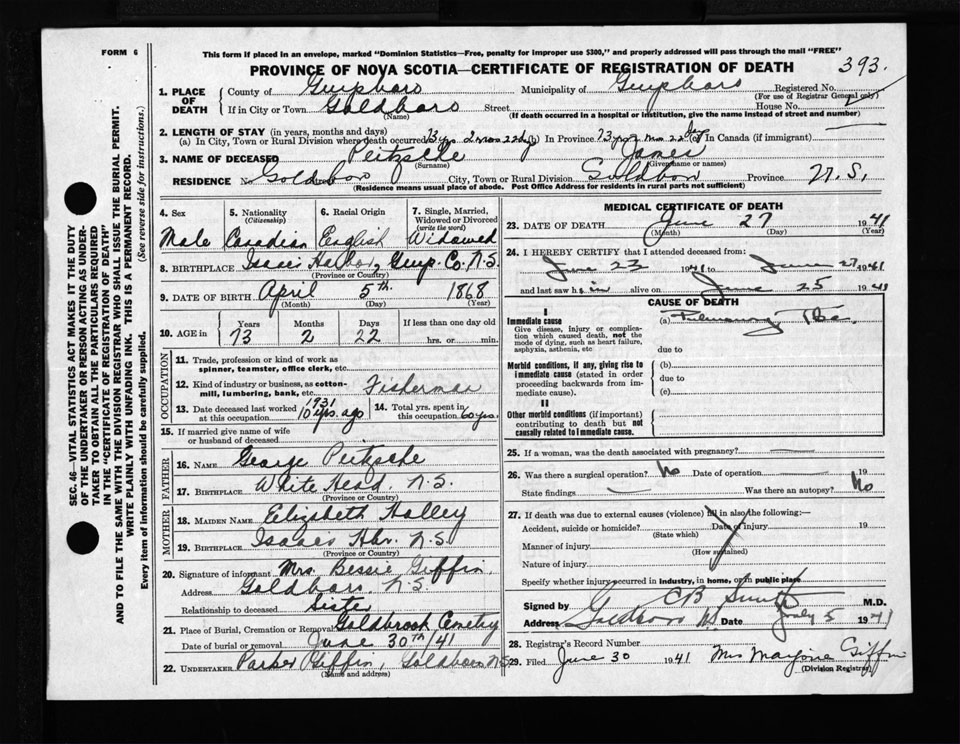 FORM 6
This form if placed in an envelope, marked "Dominion Statistics—Free, penalty for improper use $300," and properly addressed will pass through the mail "FREE"
PROVINCE OF NOVA SCOTIA—CERTIFICATE OF REGISTRATION OF DEATH 393.
1. PLACE OF DEATH
County of Guysboro Municipality of Guysboro Registered No.
(For use of Registrar General only)
If in City or Town Goldboro Street House No.
(Name) (If death occurred in a hospital or institution, give the name instead of street and number)
2. LENGTH OF STAY (in years, months and days)
(a) In City, Town or Rural Division where death occurred 73 yrs 2 mos 22 d (b) In Province 73 yrs 2 mos 22 d (c) In Canada (if immigrant)
3. NAME OF DECEASED Peitzsche James
(Surname) (Given name or names)
RESIDENCE No. Goldboro City, Town or Rural Division Goldboro Province N.S.
(Residence means usual place of abode. Post Office Address for residents in rural parts not sufficient)
4. Sex 5. Nationality (Citizenship) 6. Racial Origin 7. Single, Married, Widowed or Divorced (write the word)
Male Canadian English Widowed
8. BIRTHPLACE Isaac Harbor, Guys. Co. N.S.
(Province or Country)
9. DATE OF BIRTH April 5th 1868
(Month) (Day) (Year)
10. AGE in Years Months Days If less than one day old
73 2 22 hrs. or min.
OCCUPATION
11. Trade, profession or kind of work as spinner, teamster, office clerk, etc.
12. Kind of industry or business, as cotton-mill, lumbering, bank, etc. Fisherman
13. Date deceased last worked at this occupation 1931 10 yrs. ago 14. Total yrs. spent in this occupation 60 yrs.
15. If married give name of wife or husband of deceased
FATHER
16. NAME George Peitzsche
17. BIRTHPLACE White Head. N.S.
(Province or Country)
MOTHER
18. MAIDEN NAME Elizabeth Halley
19. BIRTHPLACE Isaacs Hbr. N.S
(Province or Country)
20. Signature of informant Mrs. Bessie Giffin.
Address Goldboro. N.S.
Relationship to deceased Sister
21. Place of Burial, Cremation or Removal Goldbrook Cemetry
Date of burial or removal June 30th 41
22. UNDERTAKER Parker Giffin, Goldboro N.S.
(Name and address)
MEDICAL CERTIFICATE OF DEATH
23. DATE OF DEATH June 27 1941
(Month) (Day) (Year)
24. I HEREBY CERTIFY that I attended deceased from:
June 23 1941 to June 27 1941
and last saw h im alive on June 25 1941
CAUSE OF DEATH
I
Immediate cause (a) Pulmonary Tbc
Give disease, injury or complication which caused death, not the mode of dying, such as heart failure, asphyxia, asthenia, etc
due to
Morbid conditions, if any, giving rise to immediate cause (stated in order proceeding backwards from immediate cause).
(b)
due to
(c)
II
Other morbid conditions (if important) contributing to death but not causally related to immediate cause.
25. If a woman, was the death associated with pregnancy?
26. Was there a surgical operation? No Date of operation 19
State findings Was there an autopsy? No
27. If death was due to external causes (violence) fill in also the following:—
Accident, suicide or homicide? Date of injury 19
(State which)
Manner of injury
(How sustained)
Nature of injury
Specify whether injury occurred in industry, in home, or in public place
Signed by C B Smith M.D.
Address Goldboro NS Date July 5 1941
28. Registrar's Record Number
29. Filed June 30 1941 Mrs Marjorie Giffin
(Division Registrar)
SEC. 46—VITAL STATISTICS ACT MAKES IT THE DUTY
OF THE UNDERTAKER OR PERSON ACTING AS UNDER-
TAKER TO OBTAIN ALL THE PARTICULARS REQUIRED
IN THE "CERTIFICATE OF REGISTRATION OF DEATH"
AND TO FILE THE SAME WITH THE DIVISION REGISTRAR WHO SHALL ISSUE THE BURIAL PERMIT.
WRITE PLAINLY WITH UNFADING INK. THIS IS A PERMANENT RECORD.
Every item of information should be carefully supplied. (See reverse side for instructions.)